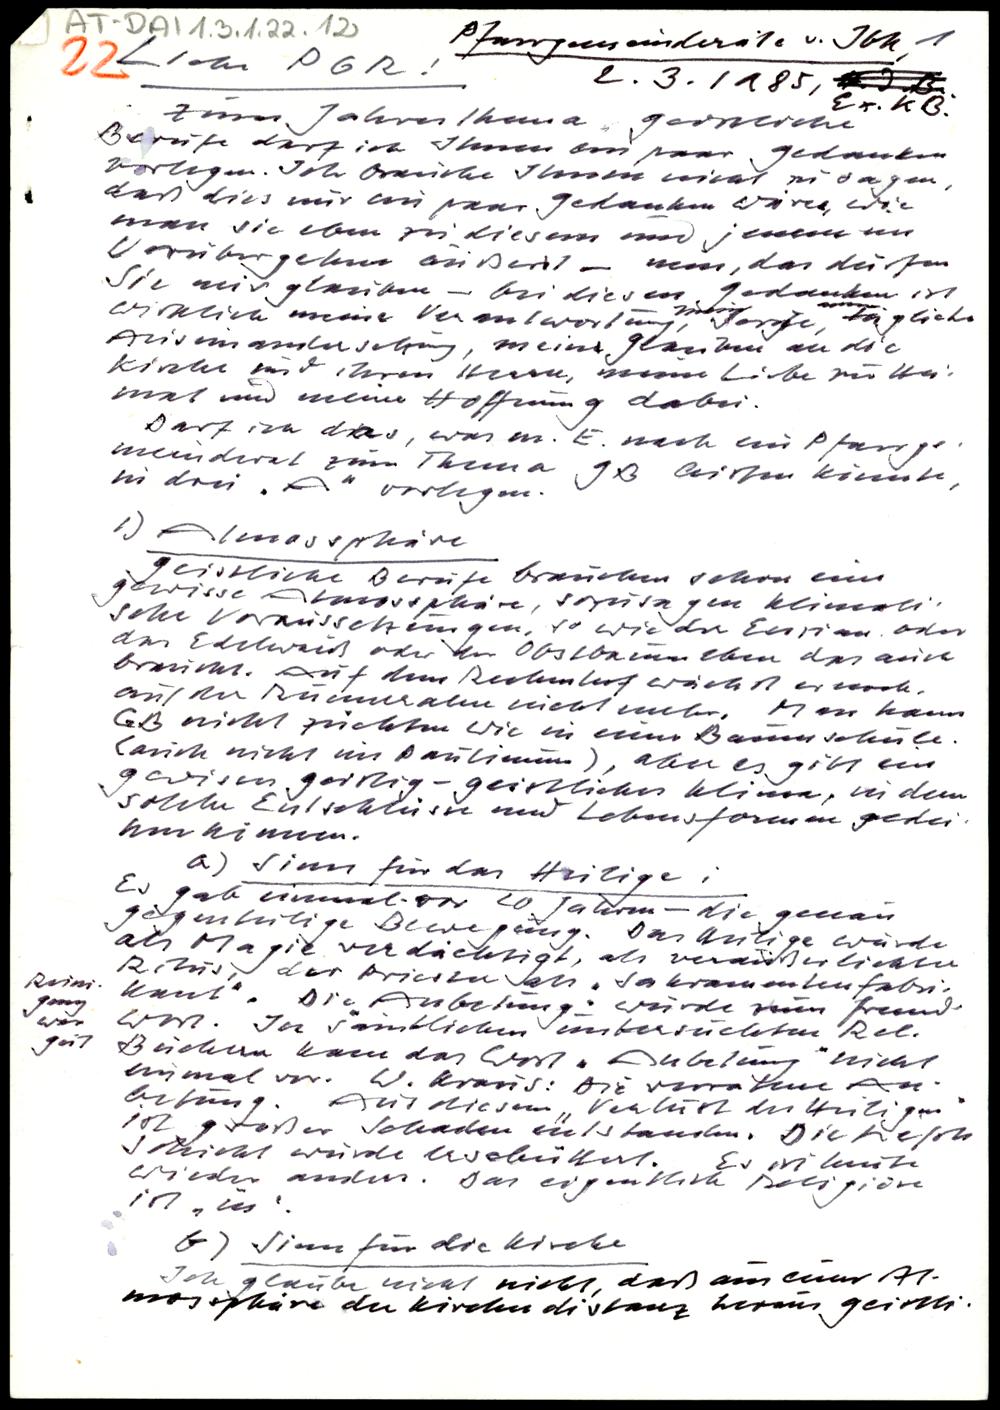 AT-DAI 1.3.1.22.12
22
Pfarrgemeinderäte v. Ibk, 1
2.3.1985,
Ex. KB.
Liebe PGR!
Zum Jahresthema "geistliche
Berufe darf ich Ihnen ein paar Gedanken
vorlegen. Ich brauche Ihnen nicht zu sagen,
daß dies nur ein paar Gedanken wären, wie
man sie eben zu diesem und jenem im
Vorübergehen äußert – nein, das dürfen
Sie mir glauben – bei diesen Gedanken ist
wirklich meine Verantwortung, meine Sorge, tägliche
Auseinandersetzung, meine Glauben an die
Kirche und ihren Herrn, meine Liebe zur Hei-
mat und meine Hoffnung dabei.
Darf ich das, was m. E. nach ein Pfarrge-
meinderat zum Thema GB leisten könnte,
in drei "A" vorlegen.
1) Atmosphäre
Geistliche Berufe brauchen schon eine
gewisse Atmosphäre, sozusagen klimati-
sche Voraussetzungen, so wie der Enzian oder
das Edelweiß oder der Obstbaum eben das auch
braucht. Auf dem Rechenhof wächst er noch,
auf der Rumeralm nicht mehr. Man kann
GB nicht züchten wie in einer Baumschule.
(auch nicht im Paulinum), aber es gibt ein
gewisses geistig-geistliches Klima, in dem
solche Entschlüsse und Lebensformen gedei-
hen können.
a) Sinn für das Heilige:
Es gab einmal vor 20 Jahren – die genau
gegenteilige Bewegung. Das Heilige wurde
als Magie verdächtigt, als veräußerlichter
Ritus, der Priester als "Sakramentenfabri-
kant". Die "Anbetung" wurde zum Fremd-
wort. In sämtlichen untersuchten Rel.
Büchern kam das Wort "Anbetung" nicht
einmal vor. W. Kraus: Die verratene An-
betung. Aus diesem "Verlust des Heiligen"
ist großer Schaden entstanden. Die Tiefen
schicht wurde erschüttert. Es ist heute
wieder anders. Das eigentlich Religiöse
ist "in".
Reini-
gung
war
gut
b) Sinn für die Kirche
Ich glaube nicht nicht, daß aus einer At-
mosphäre der Kirchendistanz heraus geistli-